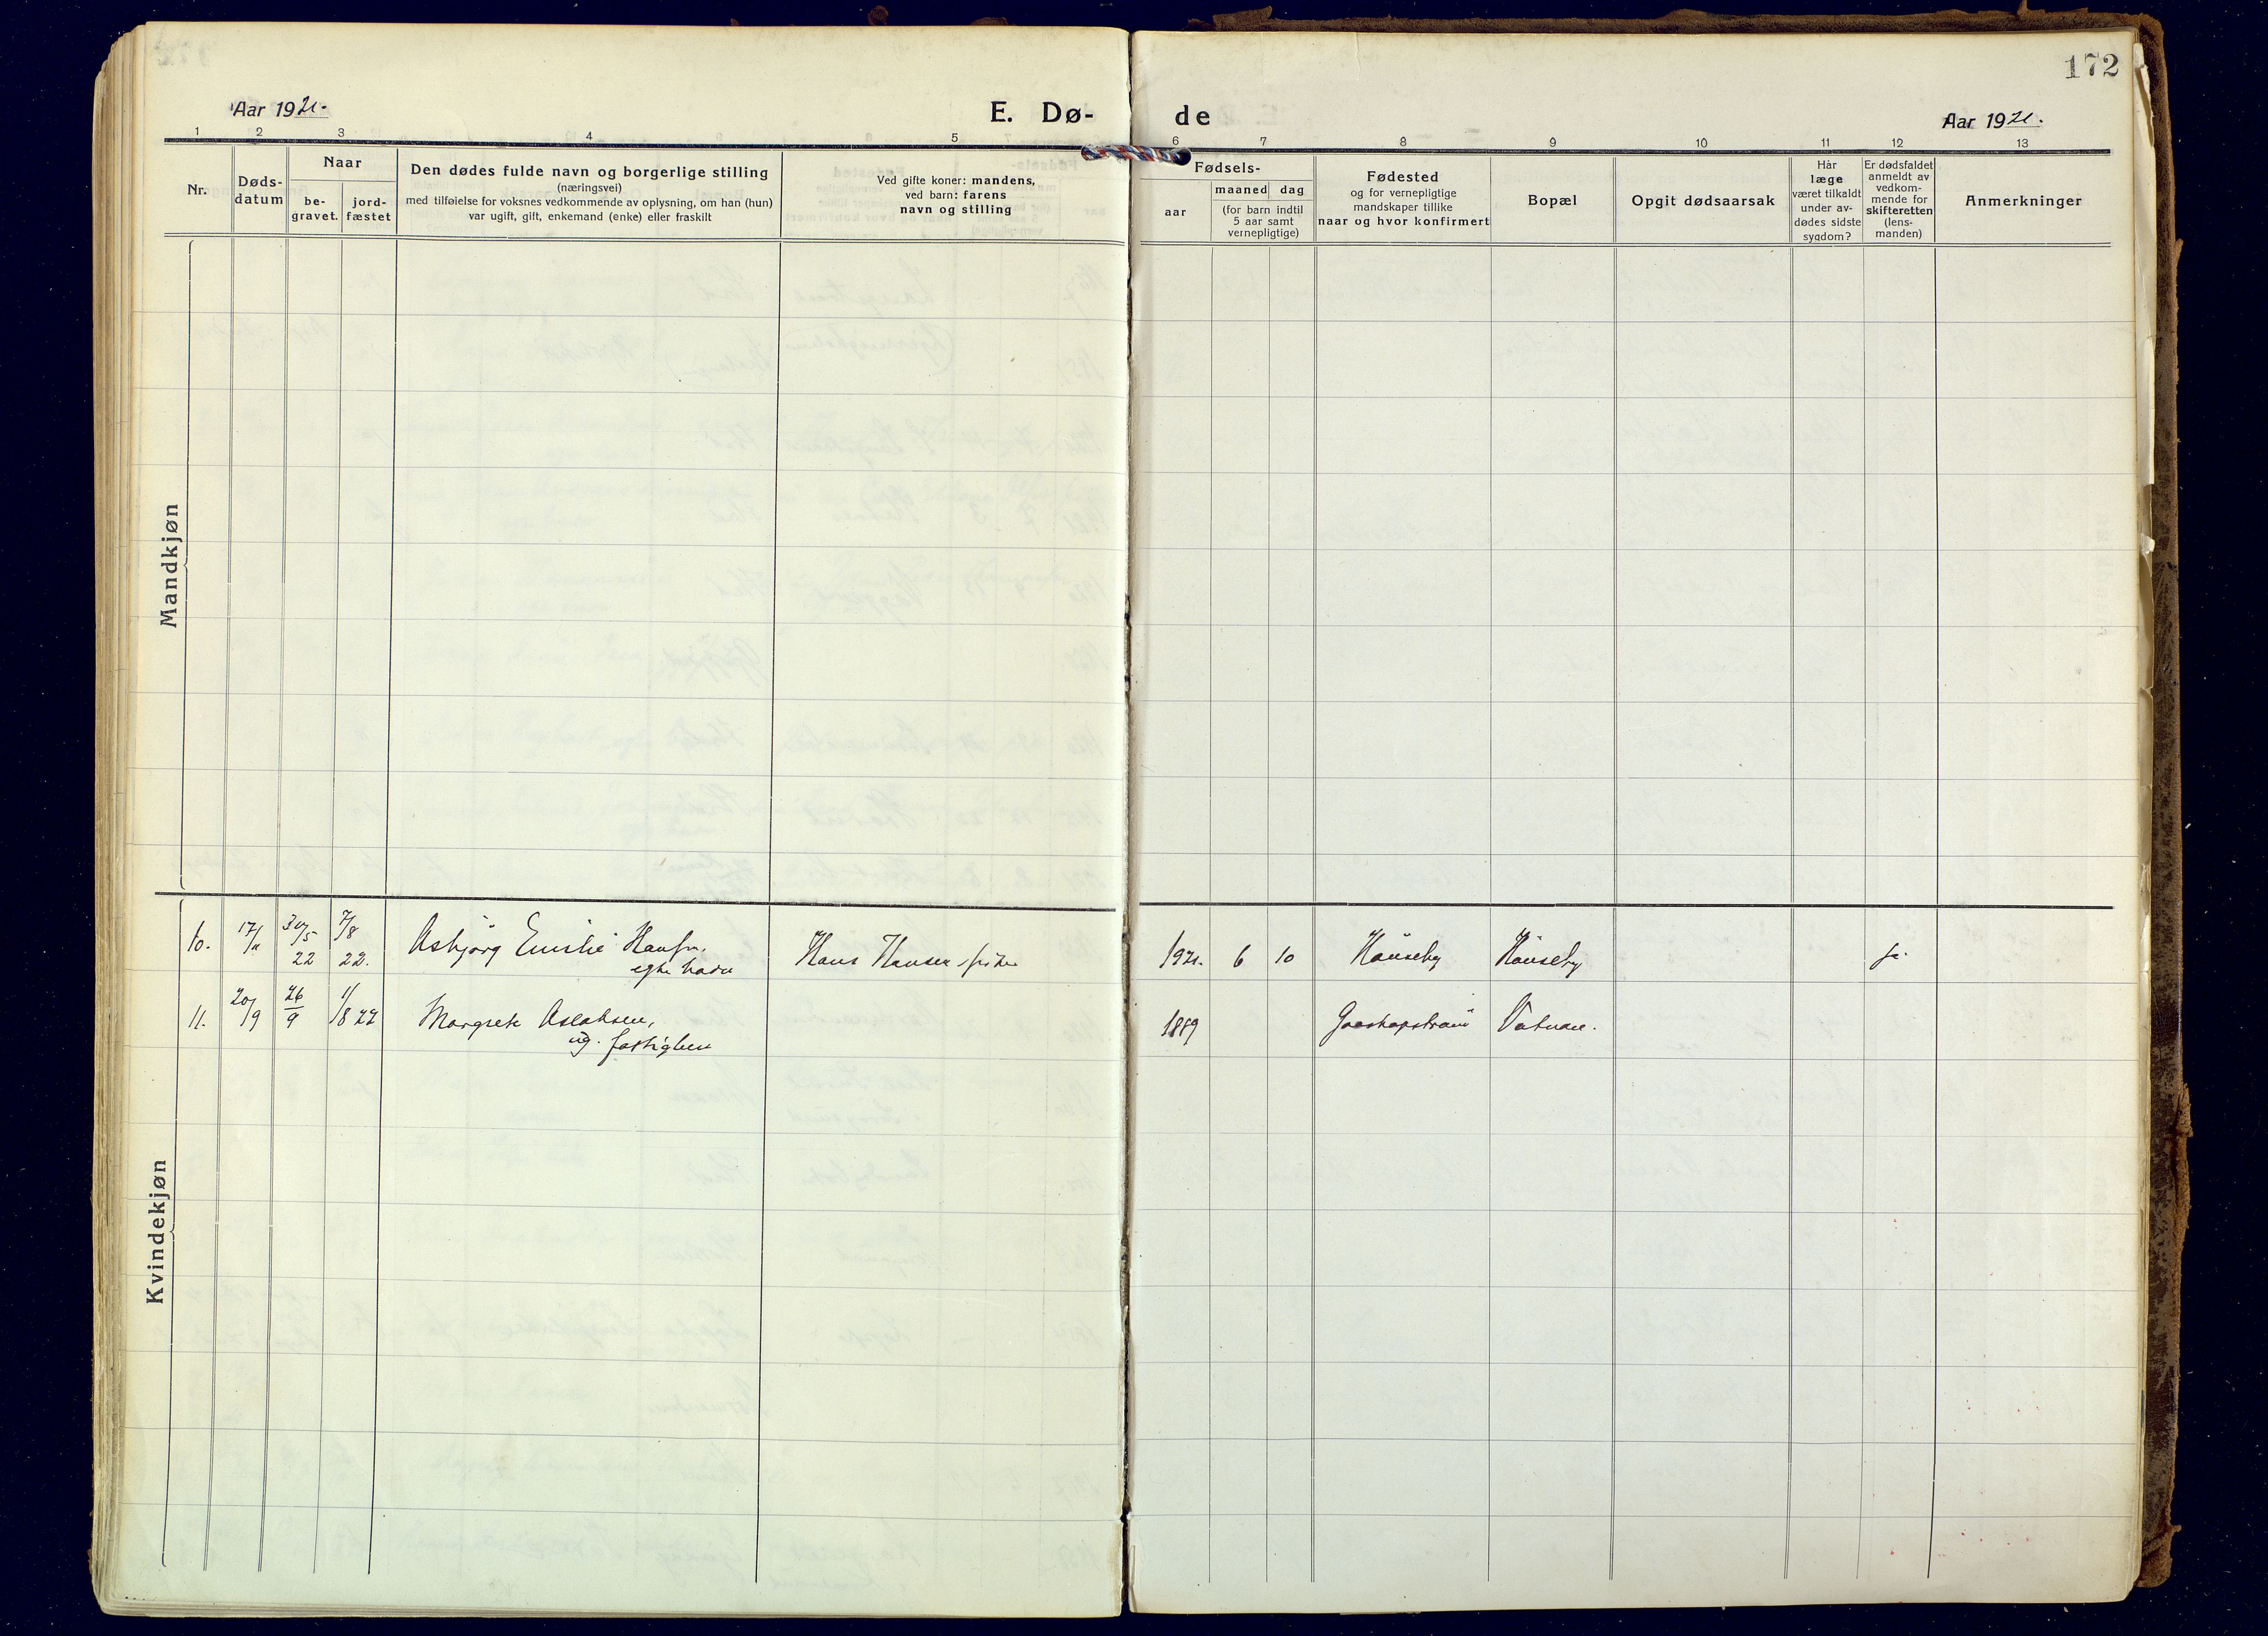 172
Aar 1921.
E. Dø-
de
Aar 1921.
1 2 3 4 5 6 7 8 9 10 11 12 13
Nr.
Døds-
datum
Naar
be-
gravet.
jord-
fæstet
Den dødes fulde navn og borgerlige stilling
(næringsvei)
med tilføielse for voksnes vedkommende av oplysning, om han (hun)
var ugift, gift, enkemand (enke) eller fraskilt
Ved gifte koner: mandens,
ved barn: farens
navn og stilling
Fødsels-
aar
maaned
dag
(for barn indtil
5 aar samt
vernepligtige)
Fødested
og for vernepligtige
mandskaper tillike
naar og hvor konfirmert
Bopæl
Opgit dødsaarsak
Har
læge
været tilkaldt
under av-
dødes sidste
sygdom?
Er dødsfaldet
anmeldt av
vedkom-
mende for
skifteretten
(lens-
manden)
Anmerkninger
Mandkjøn
10. 17/11 30/5 22 7/8 22. Asbjørg Emilie Hansen. Hans Hansen 1921. 6 10 Hønseby Hønseby ja.
egte barn
11. 20/9 26/9 1/8 22 Margrete Aslaksen, 1889 Vatnan.
ug. fattiglem
Kvindekjøn